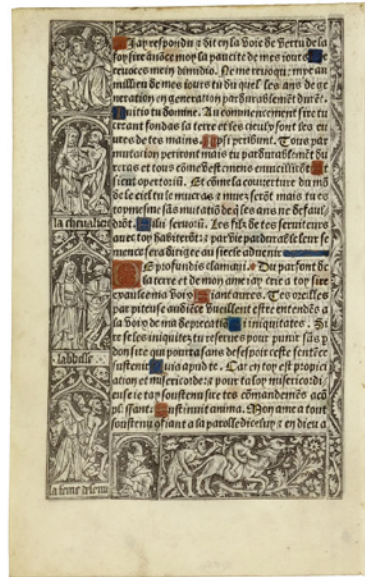 Jay respondu ⁊ dit en la voie de vertu de la
toy sire anōce moy la paucite de mes iours Ne
reuoces me in dimidio. Ne me reuoqu: mye au
millieu de mes iours tu du quel les ans de ge
neration en generation pardurablemēt durēt.
Initio tu domine. Au commencement sire tu
creant fondas la terre et les cieulx sont les eu
ures de tes mains. Ipsi peribunt. Tous par
mutation periront mais tu pardurablemēt du
reras et tous cōme vestemens enuieillirōt Et
sicut opertoriū. Et cōme la couverture du mō
de le ciel tu le mueras ⁊ muez serōt mais tu es
toymesme sās mutatiō ⁊ de q̄ les ans ne defaul
drōt. Filii seruoꝝ. Les filz de tes seruiteurs
auec toy habiterōt: ⁊ par vie pardurable leur se
mence sera dirigee au siecle aduenir
De profundis clamaui. Du parfont de
la terre et de mon ame iay crie a toy sire
exaulce ma voix Fiant aures. Tes oreilles
par piteuse audiēce vueillent estre entendēs a
la voix de ma deprecatiō Si iniquitates. Si
re se les iniquitez tu reserues pour punir sās p
don site qui pourra sans desespoir ceste sentēce
sustenir Quia apud te. Car en toy est propici
ation et misericorde: ⁊ pour ta loy misericordi
euse iay te soustenu sire tes cōmandemēs acō
plissant: Sustinuit anima. Mon ame a tout
soustenu quant a sa parolle diceluy ⁊ en dieu a
la cheualier
labbesse
la femme